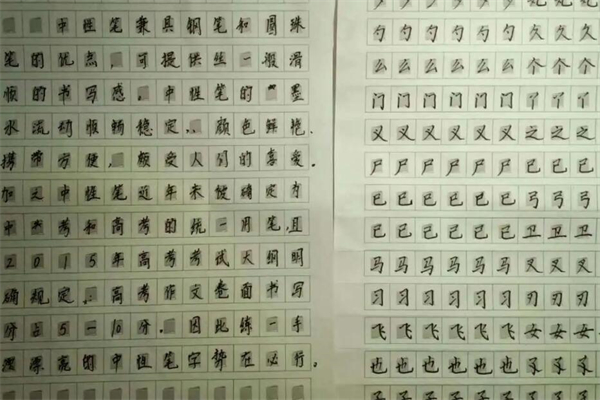 中性笔兼具钢笔和圆珠
笔的优点，可提供丝一般滑
顺的书写感。中性笔的墨
水流动顺畅稳定，颜色鲜艳
携带方便，颇受人们的喜爱。
加之中性笔近年来被确定为
中考和高考的统一用笔，且
2015年高考考试大纲明
确规定，高考作文卷面书写
分占5一10分。因此练一手
漂亮的中性笔字势在必行。
勺勺勺勺勺勺久久久
么么么么么么个个个
门门门门门门丫丫丫
义义义义义义之之之
尸尸尸尸尸尸已已已
巳巳巳巳巳巳弓弓弓
己己己己己己卫卫卫
马马马马马马叉叉叉
习习习习习习刃刃刃
飞飞飞飞飞飞女女女
也也也也也也